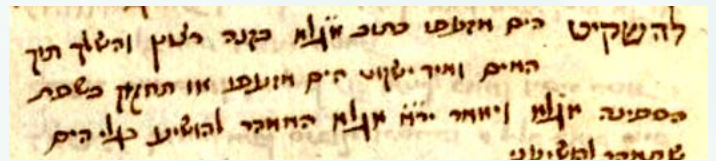 להשקיט הים מזעפו כתוב אגלא בקנה רצוץ והשלך תוך
המים ומיד ישקוט הים מזעפו או תחקק בשפת
הספינה אגלא ויאמר יר״א אגלא המהר להושיע בגלי הים
שתמהר להושיעני